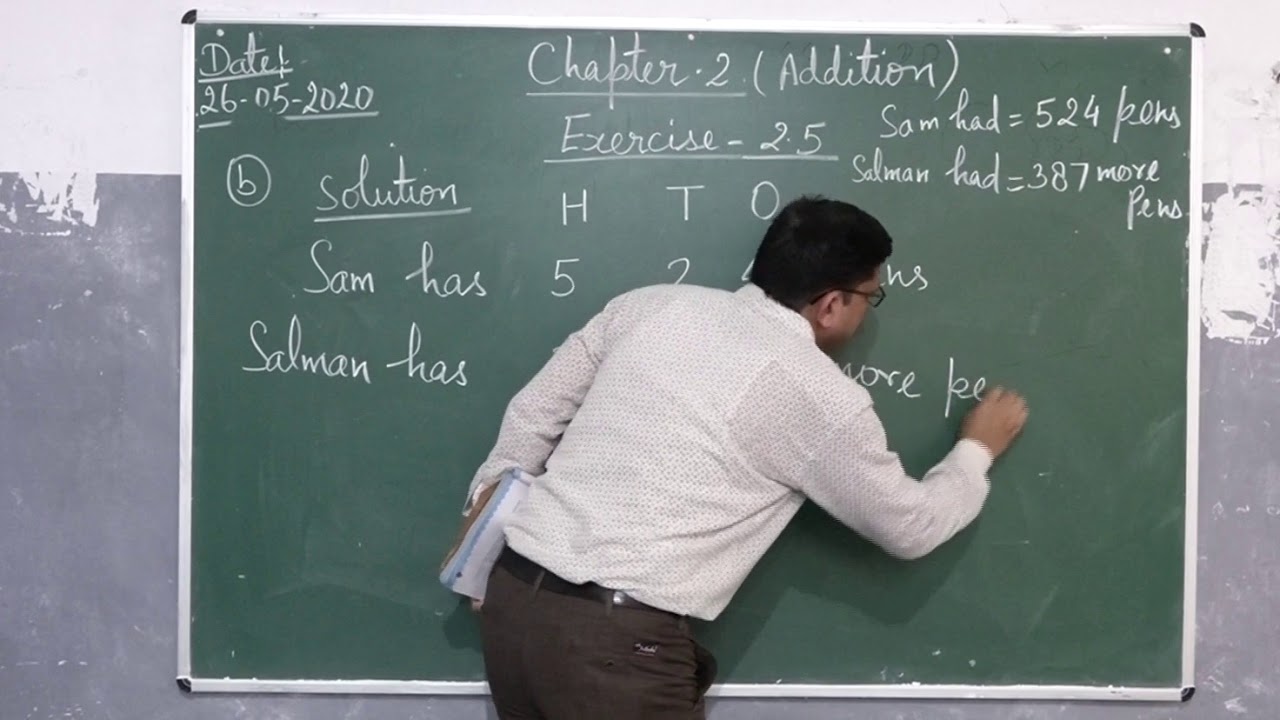 Date:
26-05-2020
Chapter.2 (Addition)
Exercise-2.5
Sam had = 524 pens
Salman had = 387 more
pens
b Solution H T O
Sam has 5 2
Salman has more